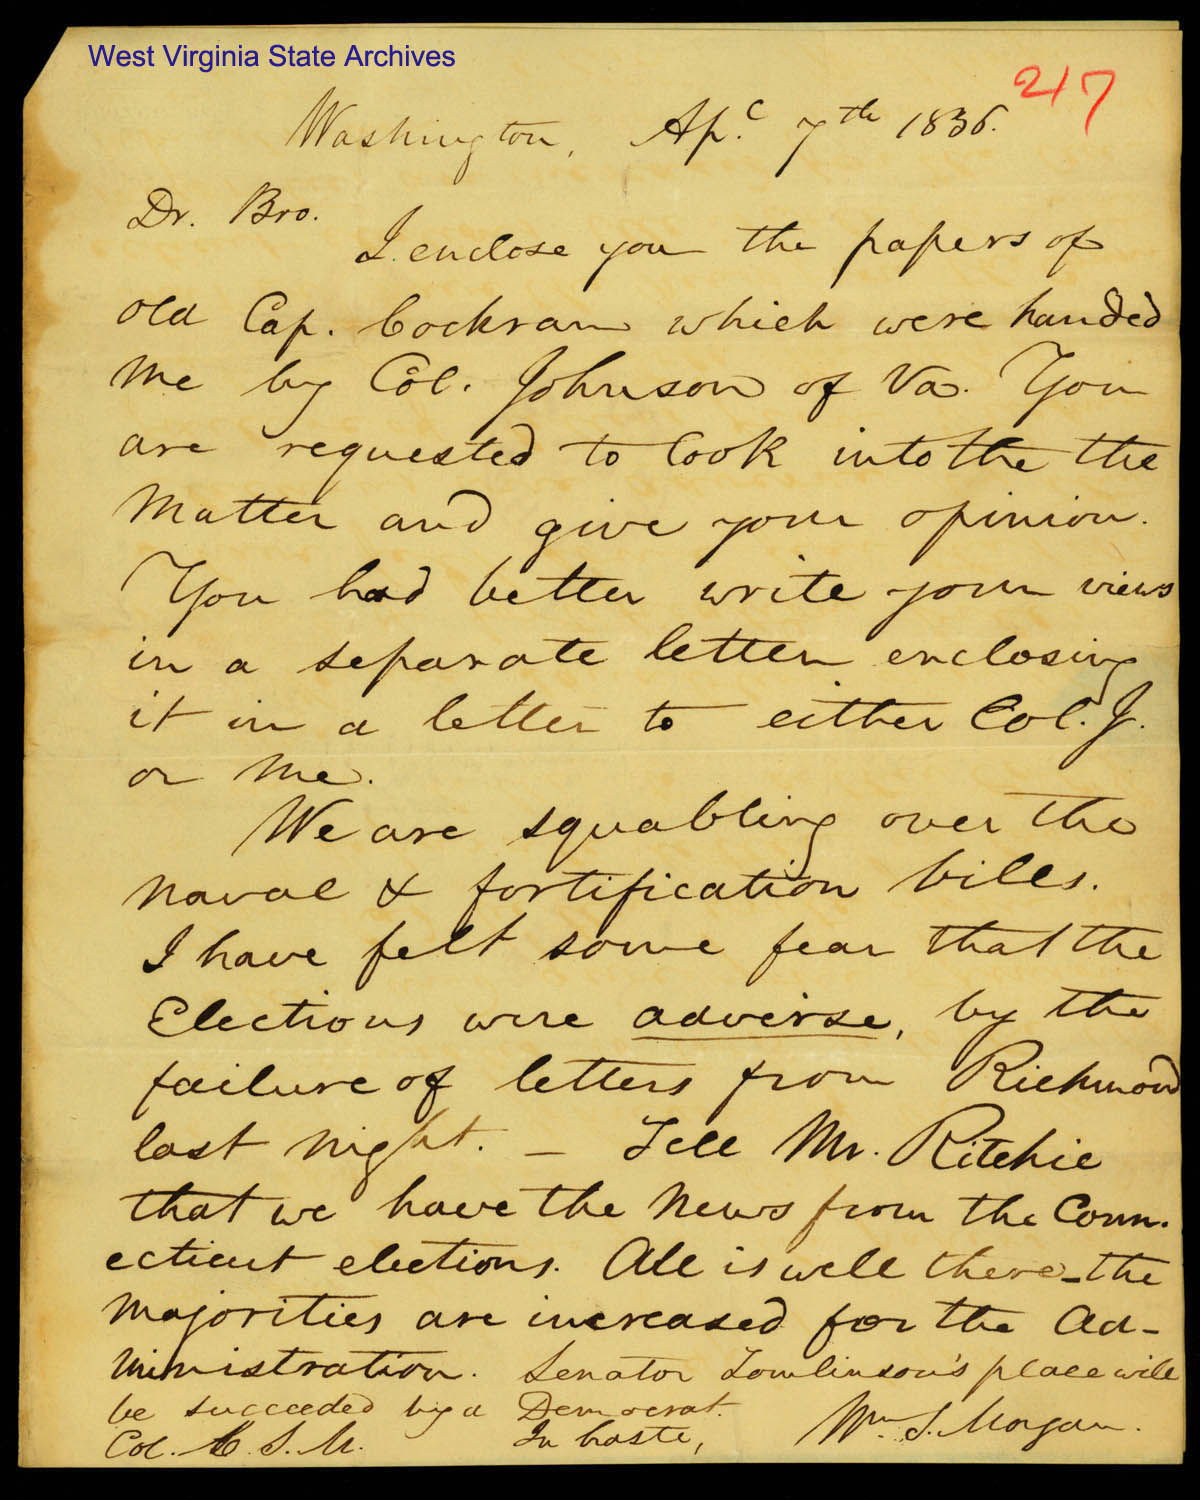 West Virginia State Archives
217
Washington, Ap.l 7th 1836.
Dr. Bro.
I enclose you the papers of
old Cap. Cockran which were handed
me by Col. Johnson of Va. You
are requested to look into the the
matter and give your opinion.
You had better write your views
in a separate letter enclosing
it in a letter to either Col. J.
or me.
We are squabling over the
naval & fortification bills.
I have felt some fear that the
Elections were adverse, by the
failure of letters from Richmond
last night. — Tell Mr. Ritchie
that we have the news from the Conn.
ecticut elections. All is well there – the
majorities are increased for the Ad-
ministration. Senator Tomlinson's place will
be succeeded by a Democrat.
Col. C. S. M. In haste, Wm. S. Morgan.